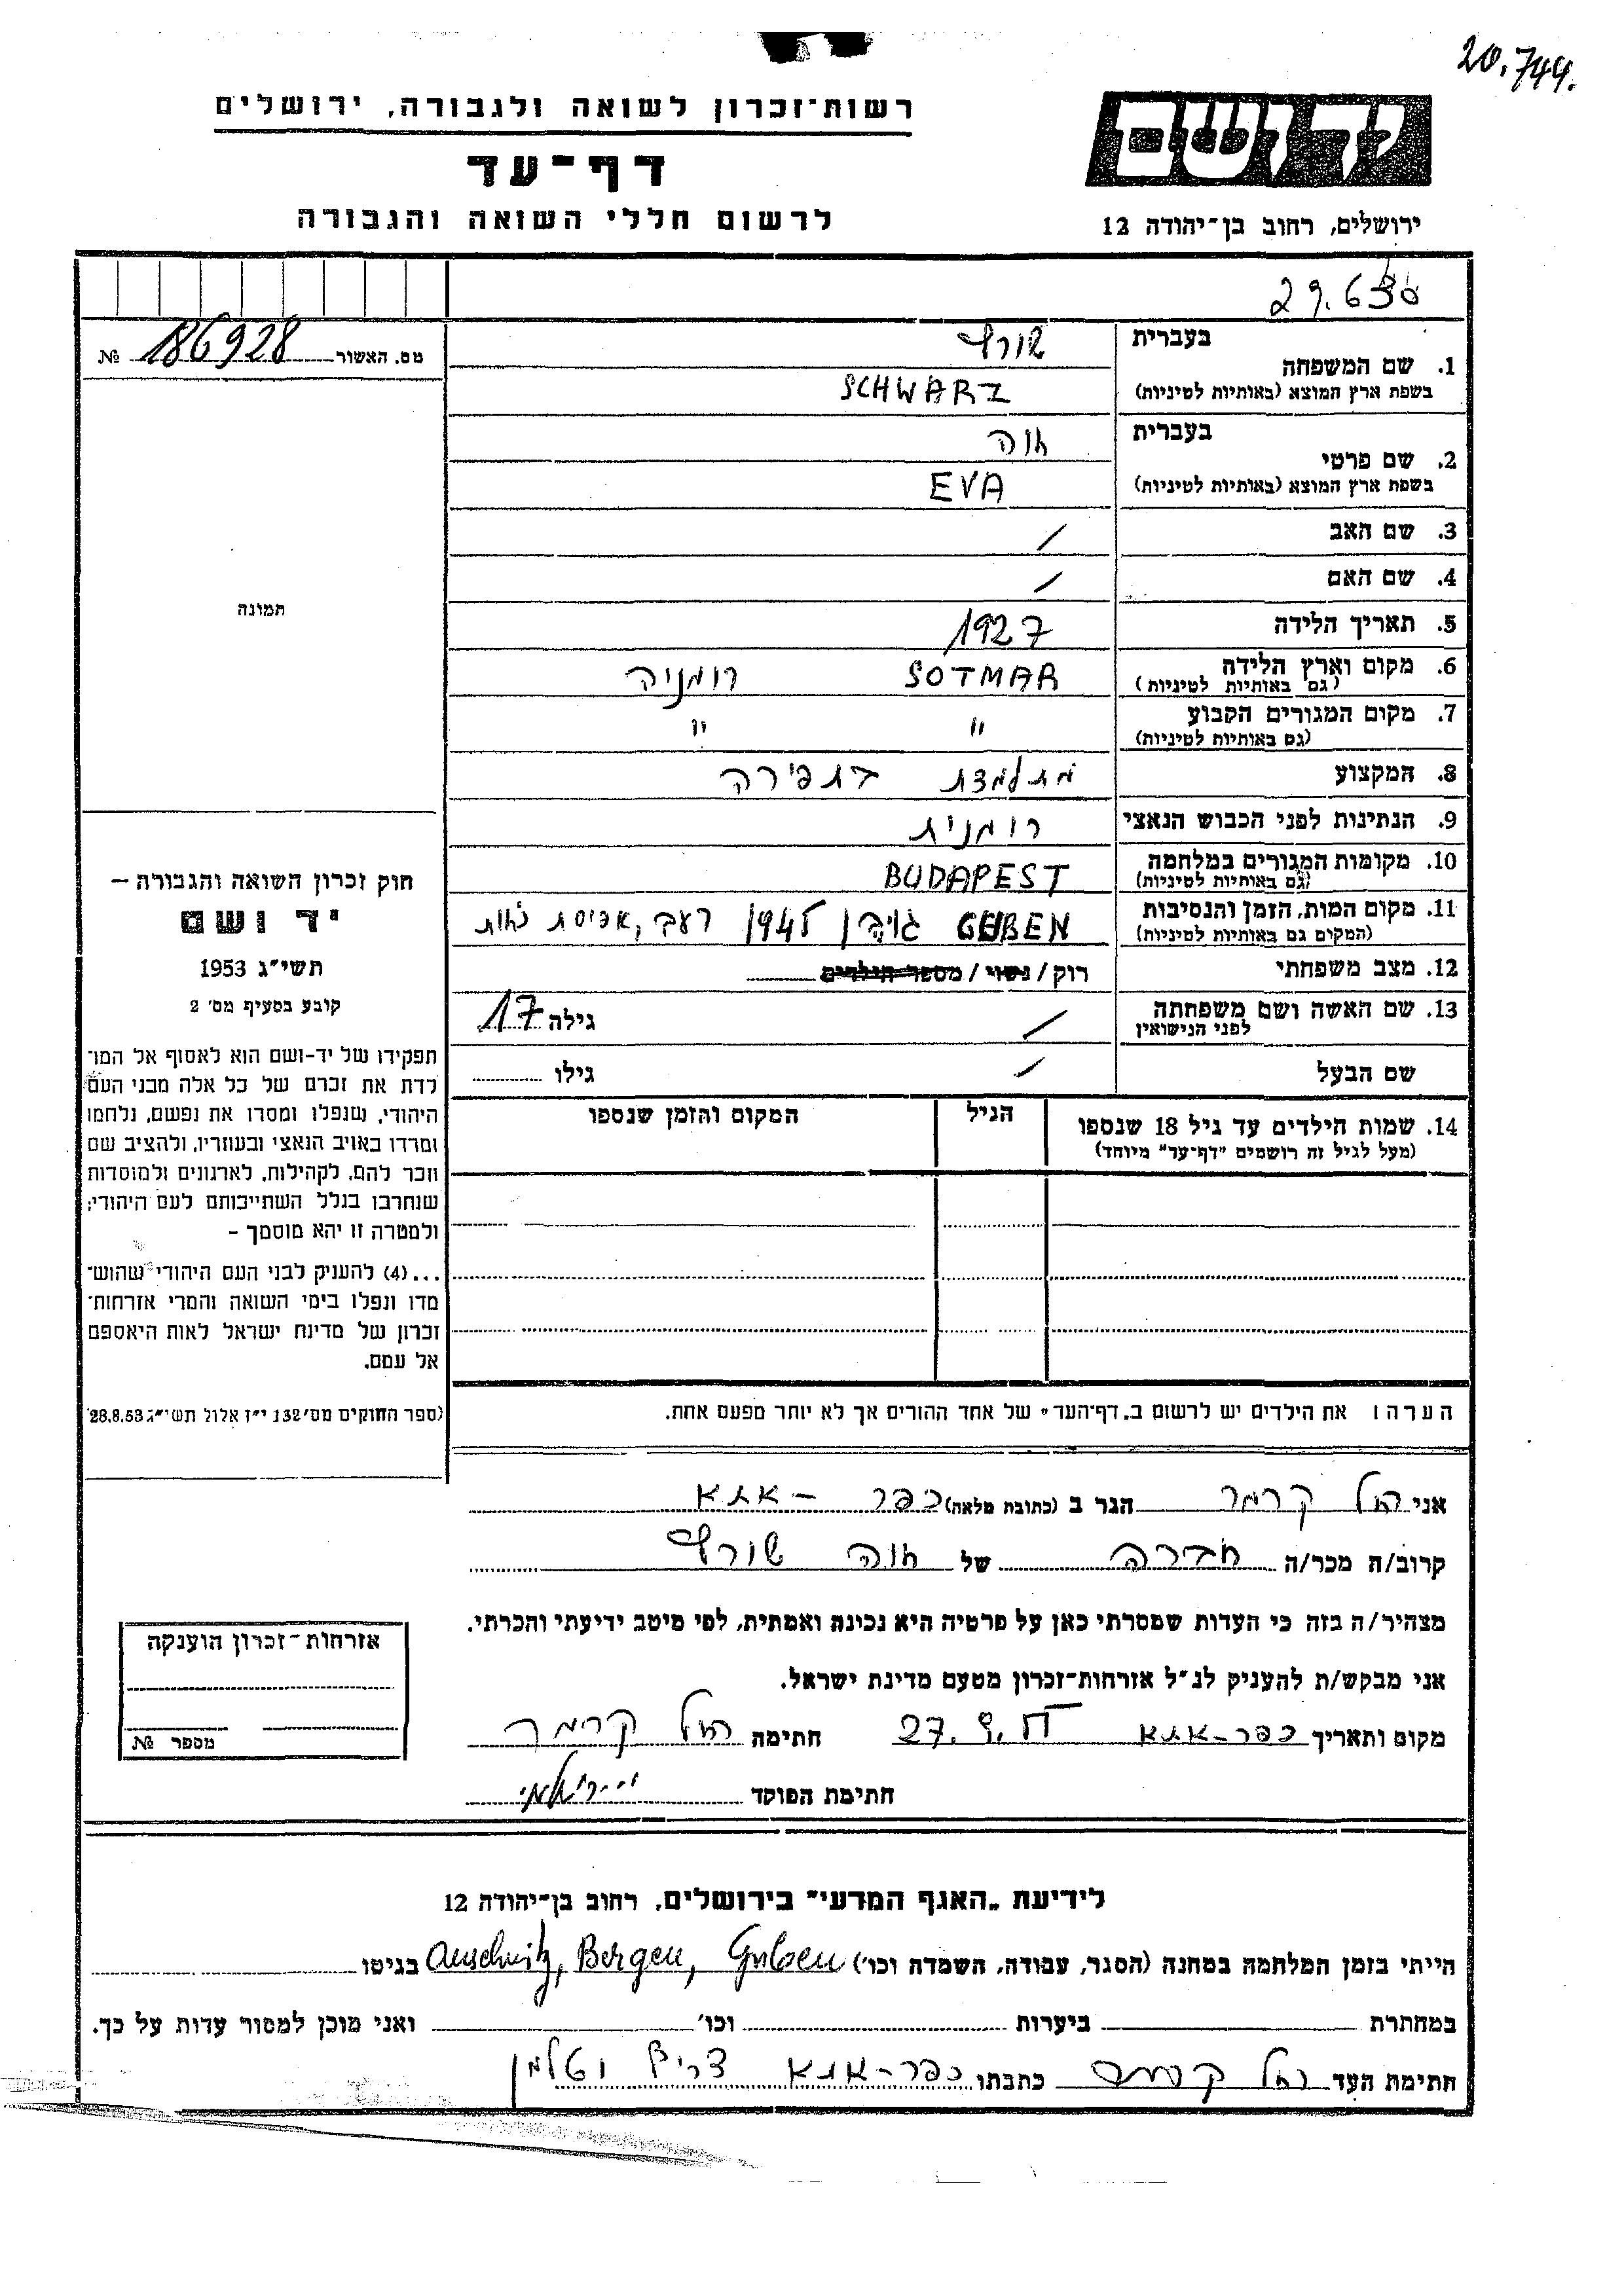 20.744.
יד ושם
ירושלים, רחוב בן־יהודה 12
רשות־זכרון לשואה ולגבורה, ירושלים
דף־עד
לרשום חללי השואה והגבורה
29.630
מס. האשור 186928 №
תמונה
1. שם המשפחה
בעברית שורץ
בשפת ארץ המוצא (באותיות לטיניות) SCHWARZ
2. שם פרטי
בעברית חוה
בשפת ארץ המוצא (באותיות לטיניות) EVA
3. שם האב /
4. שם האם /
5. תאריך הלידה 1927
6. מקום וארץ הלידה SOTMAR רומניה
(גם באותיות לטיניות)
7. מקום המגורים הקבוע " "
(גם באותיות לטיניות)
8. המקצוע מתלמדת בתפירה
9. הנתינות לפני הכבוש הנאצי רומנית
10. מקומות המגורים במלחמה BUDAPEST
(גם באותיות לטיניות)
11. מקום המות, הזמן והנסיבות GUBEN גובן 1945 רעב, אפיסת כחות
(המקום גם באותיות לטיניות)
12. מצב משפחתי רוק / נשוי / מספר הילדים
13. שם האשה ושם משפחתה / גילה 17
לפני הנישואין
שם הבעל / גילו
14. שמות הילדים עד גיל 18 שנספו הגיל המקום והזמן שנספו
(מעל לגיל זה רושמים "דף־עד" מיוחד)
הערה ו את הילדים יש לרשום ב„דף־העד" של אחד ההורים אך לא יותר מפעם אחת.
חוק זכרון השואה והגבורה –
יד ושם
תשי"ג 1953
קובע בסעיף מס' 2
תפקידו של יד-ושם הוא לאסוף אל המו־
לדת את זכרם של כל אלה מבני העם
היהודי, שנפלו ומסרו את נפשם, נלחמו
ומרדו באויב הנאצי ובעוזריו, ולהציב שם
וזכר להם, לקהילות, לארגונים ולמוסדות
שנחרבו בגלל השתייכותם לעם היהודי;
ולמטרה זו יהא מוסמך –
...(4) להעניק לבני העם היהודי שהוש־
מדו ונפלו בימי השואה והמרי אזרחות־
זכרון של מדינת ישראל לאות היאספם
אל עמם.
(ספר החוקים מס' 132 י"ז אלול תשי"ג 28.8.53)
אני רחל קרמר הגר ב (כתובת מלאה) כפר - אתא
קרוב/ה מכר/ה חברה של חוה שורץ
מצהיר/ה בזה כי העדות שמסרתי כאן על פרטיה היא נכונה ואמתית, לפי מיטב ידיעתי והכרתי.
אני מבקש/ת להעניק לנ"ל אזרחות-זכרון מטעם מדינת ישראל.
מקום ותאריך כפר-אתא 27. חתימה רחל קרמר
חתימת הפוקד
אזרחות־זכרון הוענקה
מספר №
לידיעת „האגף המדעי" בירושלים, רחוב בן־יהודה 12
הייתי בזמן המלחמה במחנה (הסגר, עבודה, השמדה וכו') Auschwitz, Bergen, Guben בגיטו
במחתרת ביערות וכו' ואני מוכן למסור עדות על כך.
חתימת העד רחל קרמר כתבתו כפר-אתא צריף וטלמן